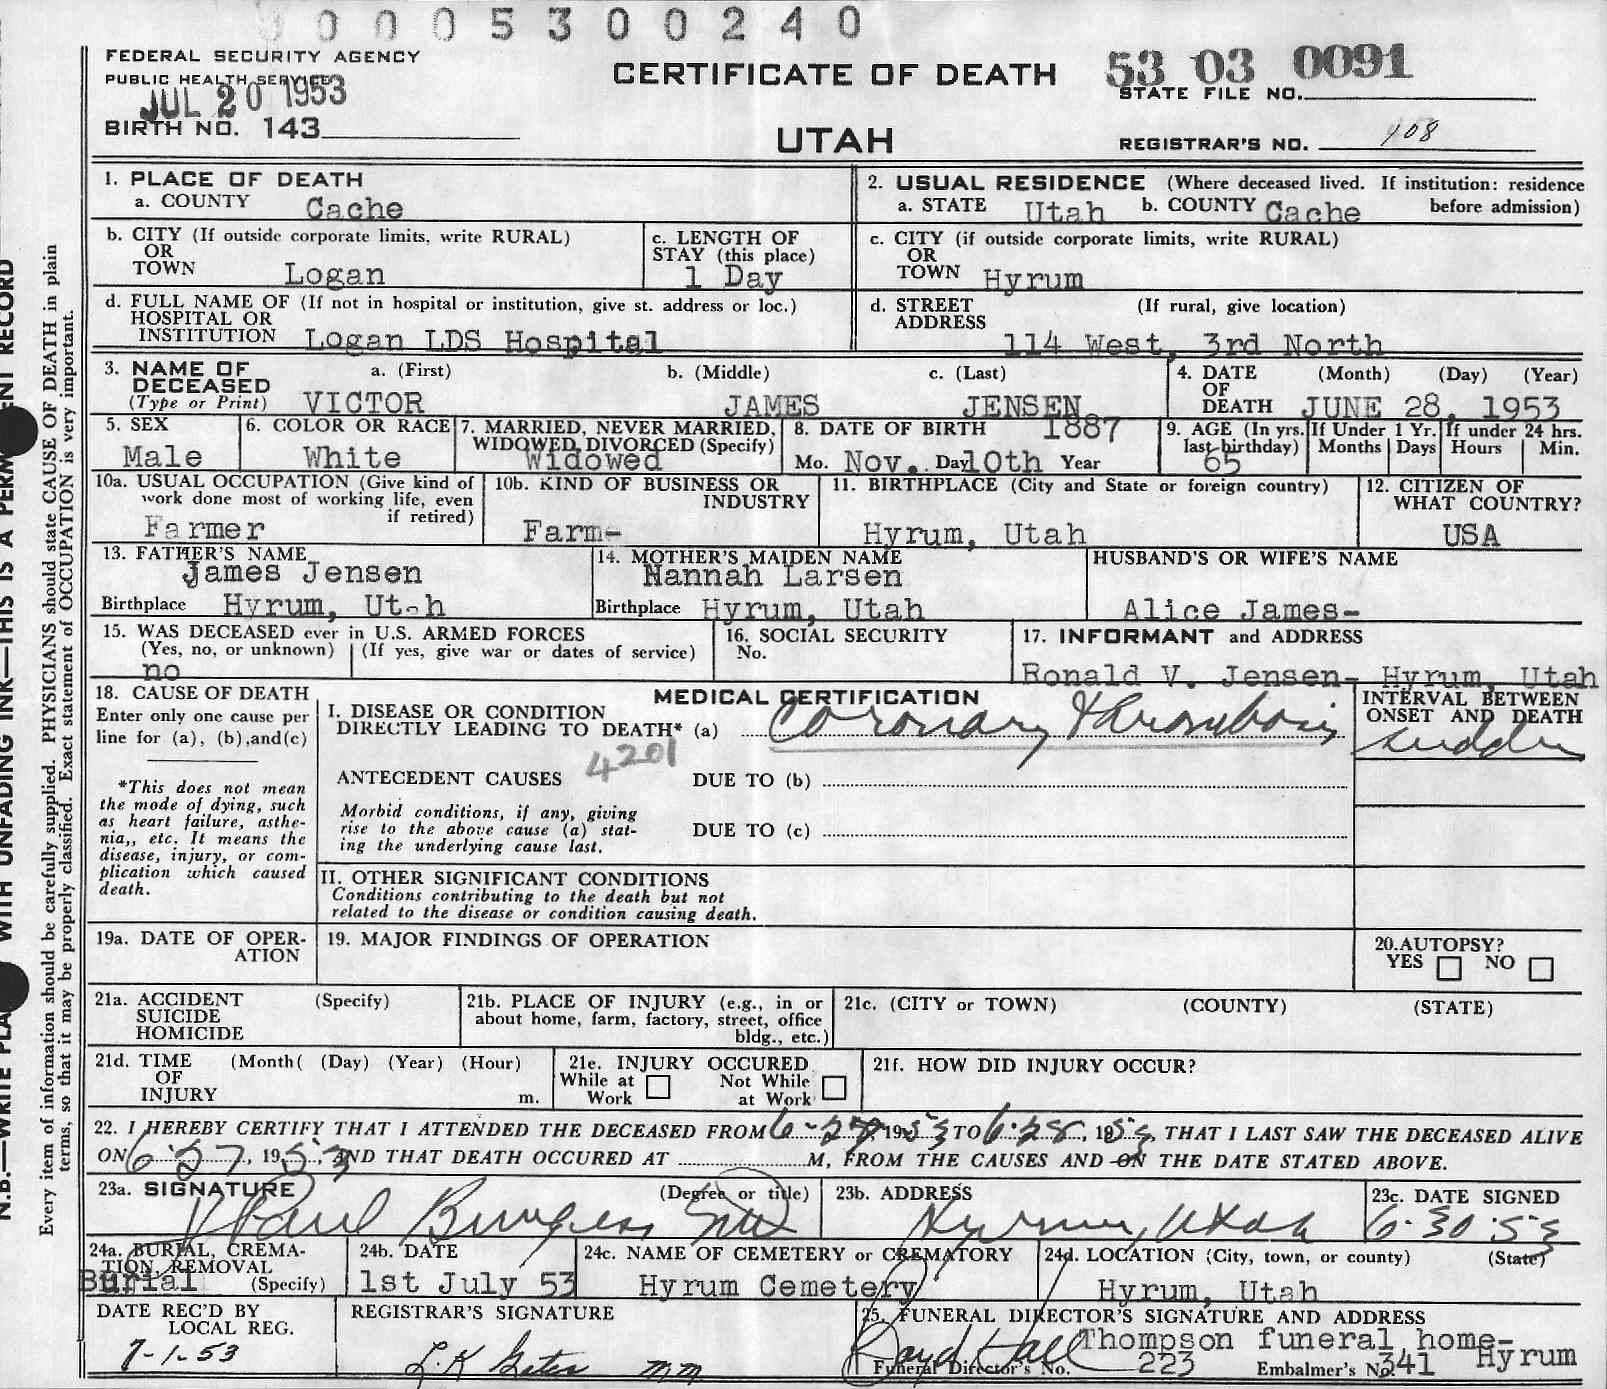 0005300240
FEDERAL SECURITY AGENCY
PUBLIC HEALTH SERVICE
JUL 20 1953
BIRTH NO. 143
CERTIFICATE OF DEATH
UTAH
53 03 0091
STATE FILE NO.
REGISTRAR'S NO. 108
N.B.—WRITE WITH UNFADING INK—THIS IS A RECORD
Every item of information should be carefully supplied. PHYSICIANS should state CAUSE OF DEATH in plain
terms, so that it may be properly classified. Exact statement of OCCUPATION is very important.
1. PLACE OF DEATH
a. COUNTY Cache
2. USUAL RESIDENCE (Where deceased lived. If institution: residence
a. STATE Utah b. COUNTY Cache before admission)
b. CITY (If outside corporate limits, write RURAL)
OR
TOWN Logan
c. LENGTH OF
STAY (this place)
1 Day
c. CITY (if outside corporate limits, write RURAL)
OR
TOWN Hyrum
d. FULL NAME OF (If not in hospital or institution, give st. address or loc.)
HOSPITAL OR
INSTITUTION Logan LDS Hospital
d. STREET (If rural, give location)
ADDRESS
114 West, 3rd North
3. NAME OF a. (First) b. (Middle) c. (Last)
DECEASED
(Type or Print) VICTOR JAMES JENSEN
4. DATE (Month) (Day) (Year)
OF
DEATH JUNE 28, 1953
5. SEX
Male
6. COLOR OR RACE
White
7. MARRIED, NEVER MARRIED,
WIDOWED, DIVORCED (Specify)
Widowed
8. DATE OF BIRTH 1887
Mo. Nov. Day 10th Year
9. AGE (In yrs.
last birthday)
65
If Under 1 Yr.
Months Days
If under 24 hrs.
Hours Min.
10a. USUAL OCCUPATION (Give kind of
work done most of working life, even
if retired)
Farmer
10b. KIND OF BUSINESS OR
INDUSTRY
Farm-
11. BIRTHPLACE (City and State or foreign country)
Hyrum, Utah
12. CITIZEN OF
WHAT COUNTRY?
USA
13. FATHER'S NAME
James Jensen
Birthplace Hyrum, Utah
14. MOTHER'S MAIDEN NAME
Hannah Larsen
Birthplace Hyrum, Utah
HUSBAND'S OR WIFE'S NAME
Alice James-
15. WAS DECEASED ever in U.S. ARMED FORCES
(Yes, no, or unknown) (If yes, give war or dates of service)
no
16. SOCIAL SECURITY
No.
17. INFORMANT and ADDRESS
Ronald V. Jensen- Hyrum, Utah
18. CAUSE OF DEATH
Enter only one cause per
line for (a), (b), and (c)
*This does not mean
the mode of dying, such
as heart failure, asthe-
nia,, etc. It means the
disease, injury, or com-
plication which caused
death.
MEDICAL CERTIFICATION
I. DISEASE OR CONDITION
DIRECTLY LEADING TO DEATH* (a) Coronary thrombosis
4201
ANTECEDENT CAUSES DUE TO (b)
Morbid conditions, if any, giving
rise to the above cause (a) stat-
ing the underlying cause last.
DUE TO (c)
INTERVAL BETWEEN
ONSET AND DEATH
sudden
II. OTHER SIGNIFICANT CONDITIONS
Conditions contributing to the death but not
related to the disease or condition causing death.
19a. DATE OF OPER-
ATION
19. MAJOR FINDINGS OF OPERATION
20. AUTOPSY?
YES NO
21a. ACCIDENT (Specify)
SUICIDE
HOMICIDE
21b. PLACE OF INJURY (e.g., in or
about home, farm, factory, street, office
bldg., etc.)
21c. (CITY or TOWN) (COUNTY) (STATE)
21d. TIME (Month( (Day) (Year) (Hour)
OF
INJURY m.
21e. INJURY OCCURED
While at Work Not While at Work
21f. HOW DID INJURY OCCUR?
22. I HEREBY CERTIFY THAT I ATTENDED THE DECEASED FROM 6-27, 1953 TO 6-28, 1953, THAT I LAST SAW THE DECEASED ALIVE
ON 6-27, 1953, AND THAT DEATH OCCURED AT M, FROM THE CAUSES AND ON THE DATE STATED ABOVE.
23a. SIGNATURE (Degree or title)
Paul Burgess MD
23b. ADDRESS
Hyrum, Utah
23c. DATE SIGNED
6-30-53
24a. BURIAL, CREMA-
TION, REMOVAL
Burial (Specify)
24b. DATE
1st July 53
24c. NAME OF CEMETERY or CREMATORY
Hyrum Cemetery
24d. LOCATION (City, town, or county) (State)
Hyrum, Utah
DATE REC'D BY
LOCAL REG.
7-1-53
REGISTRAR'S SIGNATURE
L.K. Gates mm
25. FUNERAL DIRECTOR'S SIGNATURE AND ADDRESS
Boyd Hall Thompson funeral home-
Hyrum
Funeral Director's No. 223 Embalmer's No. 341